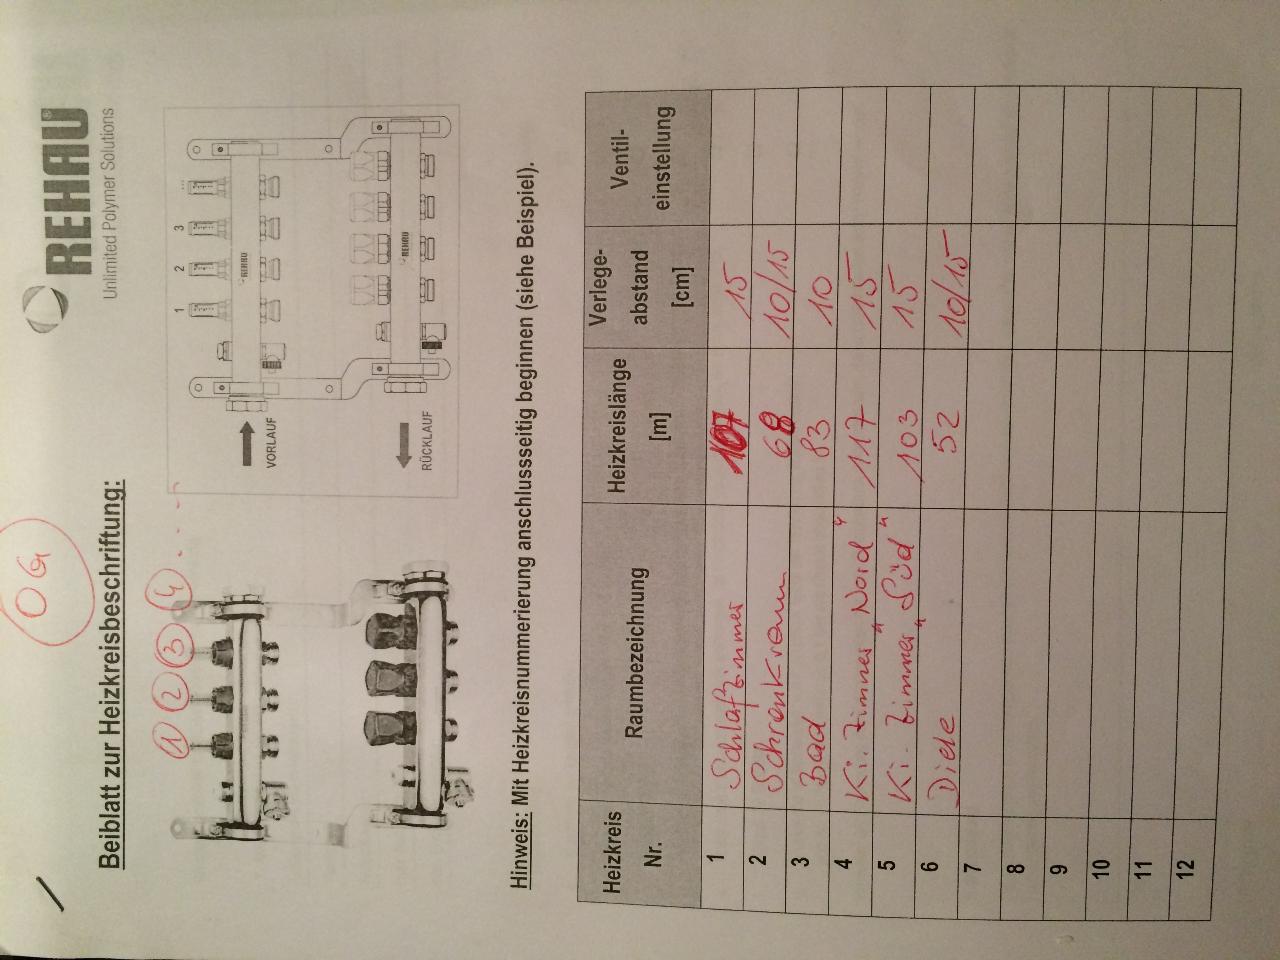 OG
REHAU®
Unlimited Polymer Solutions
Beiblatt zur Heizkreisbeschriftung:
1 2 3 4 . . .
1 2 3 ...
VORLAUF
REHAU
RÜCKLAUF
REHAU
Hinweis: Mit Heizkreisnummerierung anschlussseitig beginnen (siehe Beispiel).
Heizkreis Nr. Raumbezeichnung Heizkreislänge [m] Verlege-abstand [cm] Ventil-einstellung
1 Schlafzimmer 107 15
2 Schrankraum 68 10/15
3 Bad 83 10
4 Ki. Zimmer "Nord" 117 15
5 Ki. Zimmer "Süd" 103 15
6 Diele 52 10/15
7
8
9
10
11
12